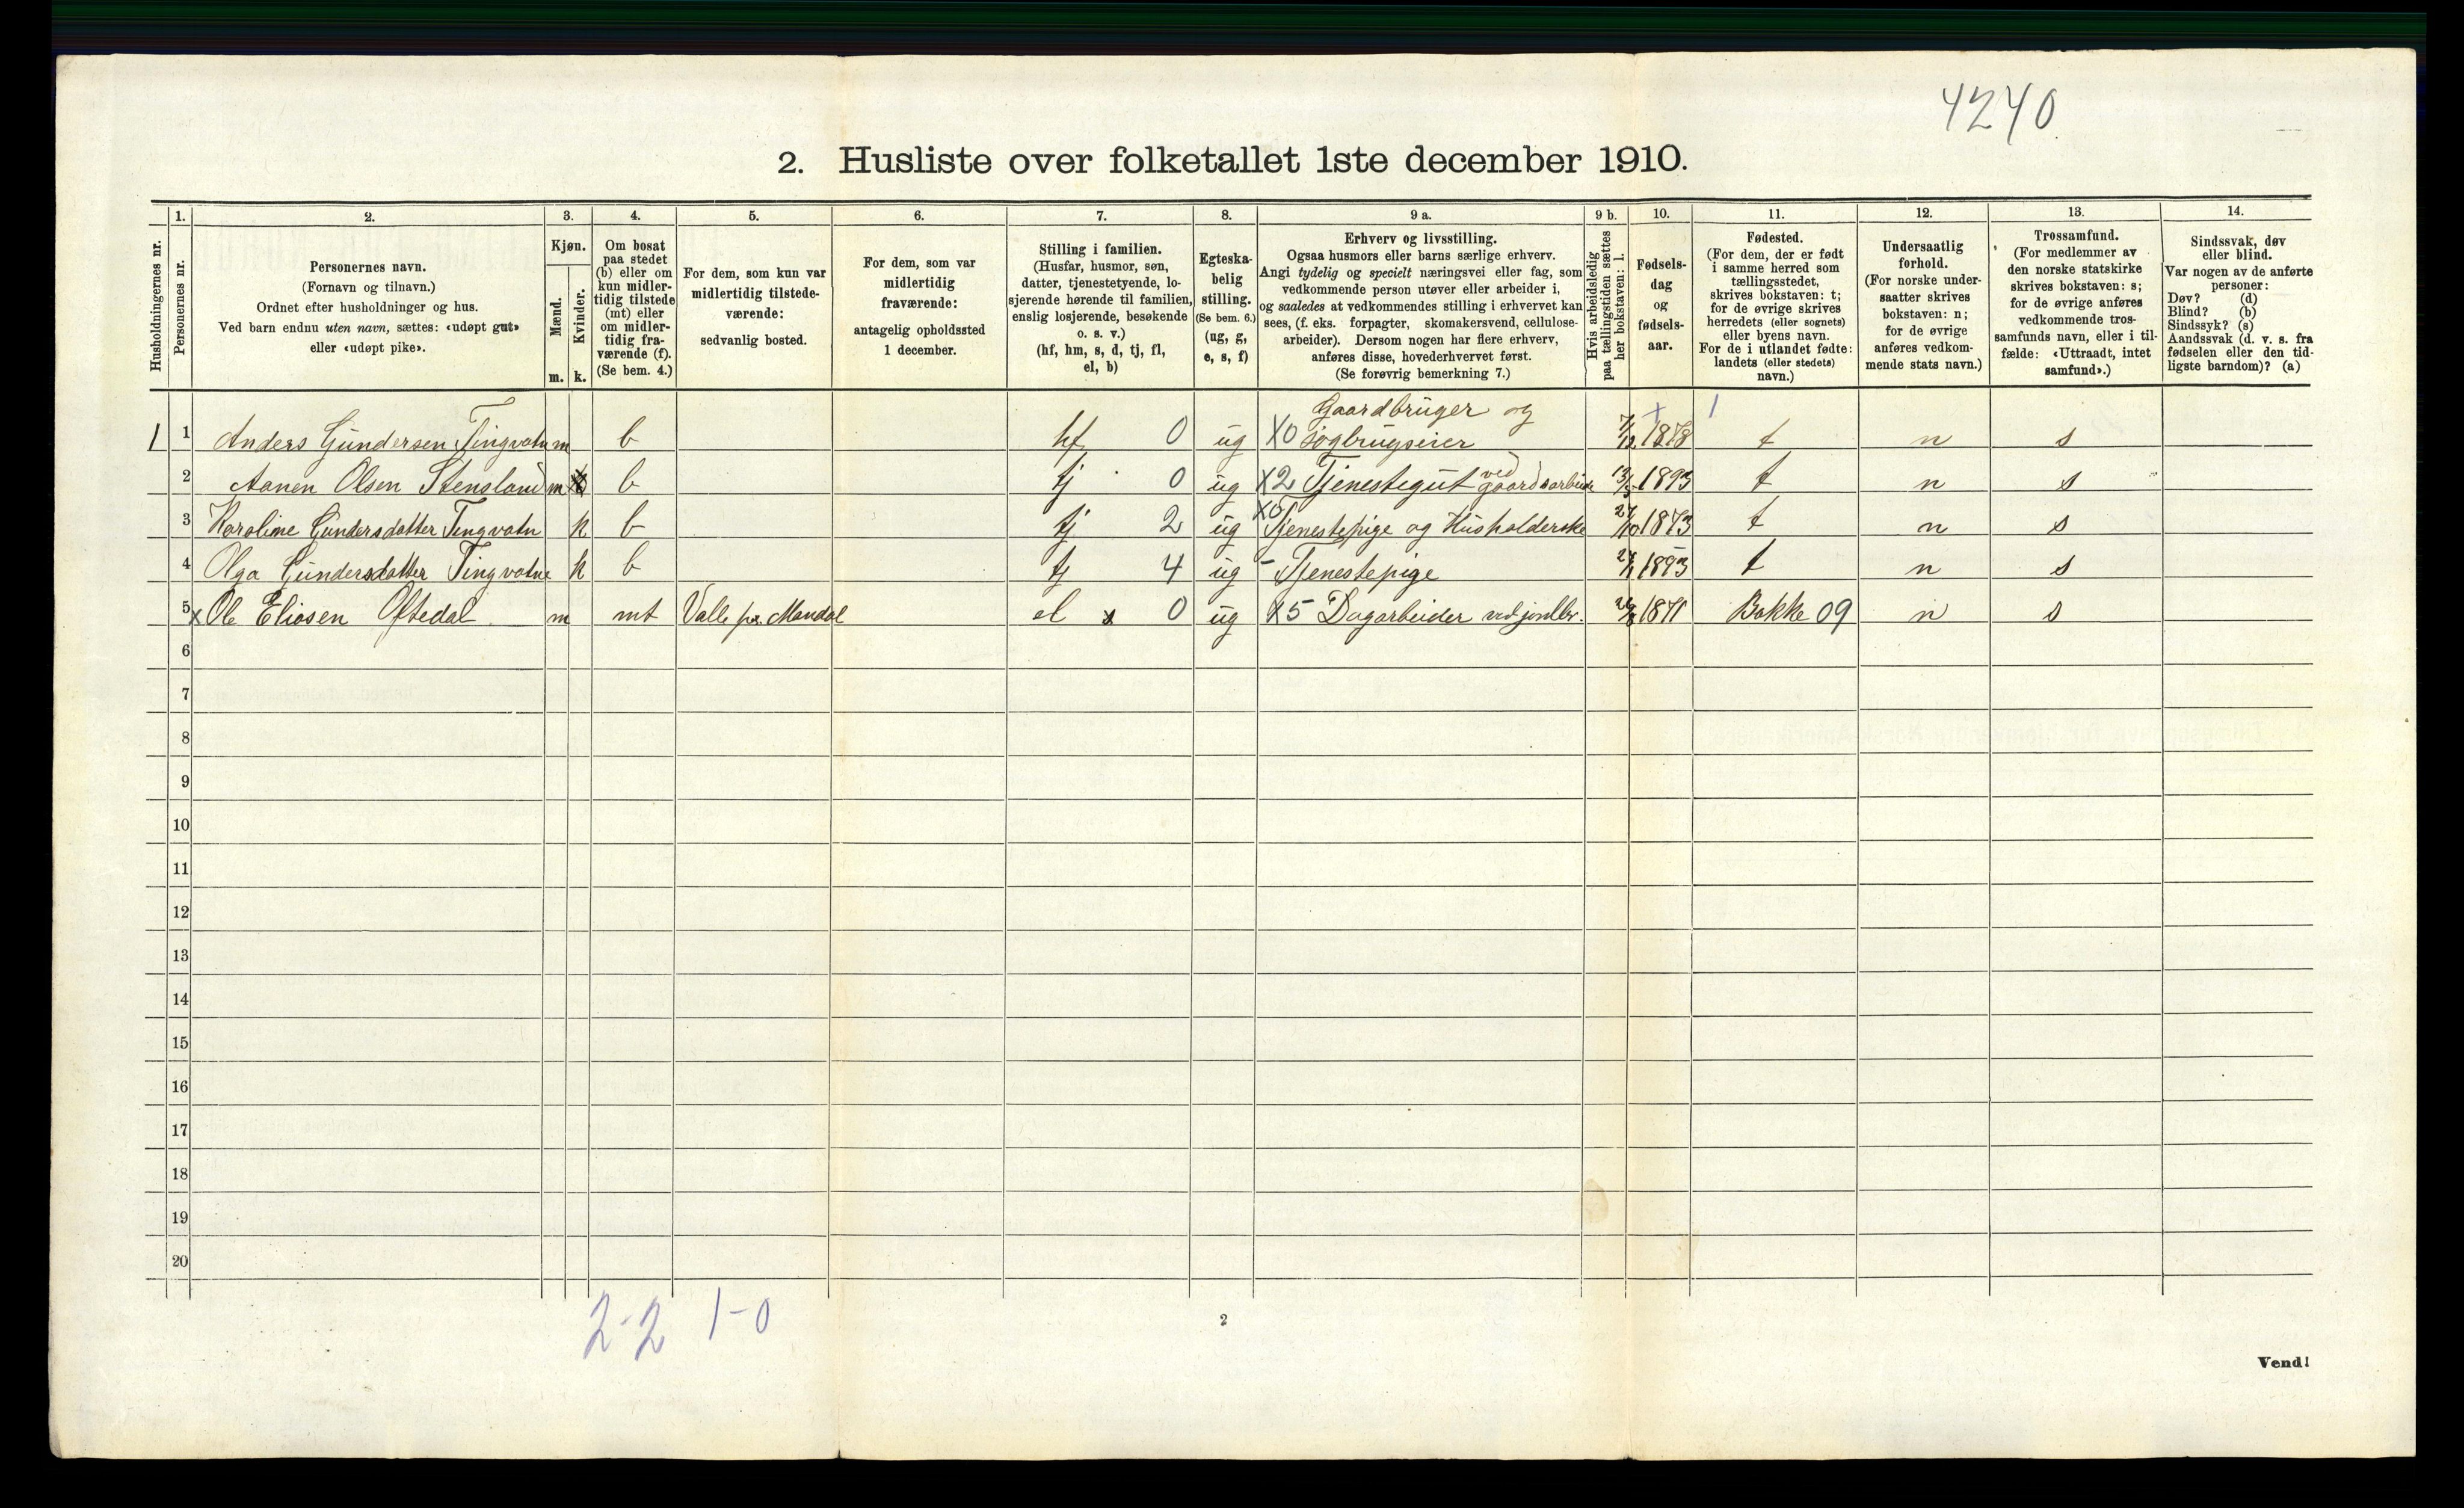 4240
2. Husliste over folketallet 1ste december 1910.
Husholdningernes nr.
1.
Personernes nr.
2.
Personernes navn.
(Fornavn og tilnavn.)
Ordnet efter husholdninger og hus.
Ved barn endnu uten navn, sættes: «udøpt gut»
eller «udøpt pike».
3.
Kjøn.
Mænd.
Kvinder.
m. k.
4.
Om bosat
paa stedet
(b) eller om
kun midler-
tidig tilstede
(mt) eller
om midler-
tidig fra-
værende (f).
(Se bem. 4.)
5.
For dem, som kun var
midlertidig tilstede-
værende:
sedvanlig bosted.
6.
For dem, som var
midlertidig
fraværende:
antagelig opholdssted
1 december.
7.
Stilling i familien.
(Husfar, husmor, søn,
datter, tjenestetyende, lo-
sjerende hørende til familien,
enslig losjerende, besøkende
o. s. v.)
(hf, hm, s, d, tj, fl,
el, b)
8.
Egteska-
belig
stilling.
(Se bem. 6.)
(ug, g,
e, s, f)
9 a.
Erhverv og livsstilling.
Ogsaa husmors eller barns særlige erhverv.
Angi tydelig og specielt næringsvei eller fag, som
vedkommende person utøver eller arbeider i,
og saaledes at vedkommendes stilling i erhvervet kan
sees, (f. eks. forpagter, skomakersvend, cellulose-
arbeider). Dersom nogen har flere erhverv,
anføres disse, hovederhvervet først.
(Se forøvrig bemerkning 7.)
9 b.
Hvis arbeidsledig
paa tællingstiden sættes
her bokstaven: l.
10.
Fødsels-
dag
og
fødsels-
aar.
11.
Fødested.
(For dem, der er født
i samme herred som
tællingsstedet,
skrives bokstaven: t;
for de øvrige skrives
herredets (eller sognets)
eller byens navn.
For de i utlandet fødte:
landets (eller stedets)
navn.)
12.
Undersaatlig
forhold.
(For norske under-
saatter skrives
bokstaven: n;
for de øvrige
anføres vedkom-
mende stats navn.)
13.
Trossamfund.
(For medlemmer av
den norske statskirke
skrives bokstaven: s;
for de øvrige anføres
vedkommende tros-
samfunds navn, eller i til-
fælde: «Uttraadt, intet
samfund».)
14.
Sindssvak, døv
eller blind.
Var nogen av de anførte
personer:
Døv? (d)
Blind? (b)
Sindssyk? (s)
Aandssvak (d. v. s. fra
fødselen eller den tid-
ligste barndom)? (a)
Gaardbruger og + 1
1 1 Anders Gundersen Tingvatn m b hf 0 ug X0 sogbrugseier 7/12 1878 t n s
2 Aanen Olsen Stensland m b tj 0 ug X2 Tjenestegut ved gaardsarbeide 1893 t n s
3 Karoline Gundersdatter Tingvatn k b tj 2 ug X0 Tjenestepige og Husholderske 1873 t n s
4 Olga Gundersdatter Tingvatne k b tj 4 ug - Tjenestepige 1893 t n s
5 x Ole Eliasen Oftedal m mt Valle pr. Mandal el x 0 ug X5 Dagarbeider ved jordbr. 1871 Bakke 09 n s
6
7
8
9
10
11
12
13
14
15
16
17
18
19
20
2-2 1-0
2
Vend!